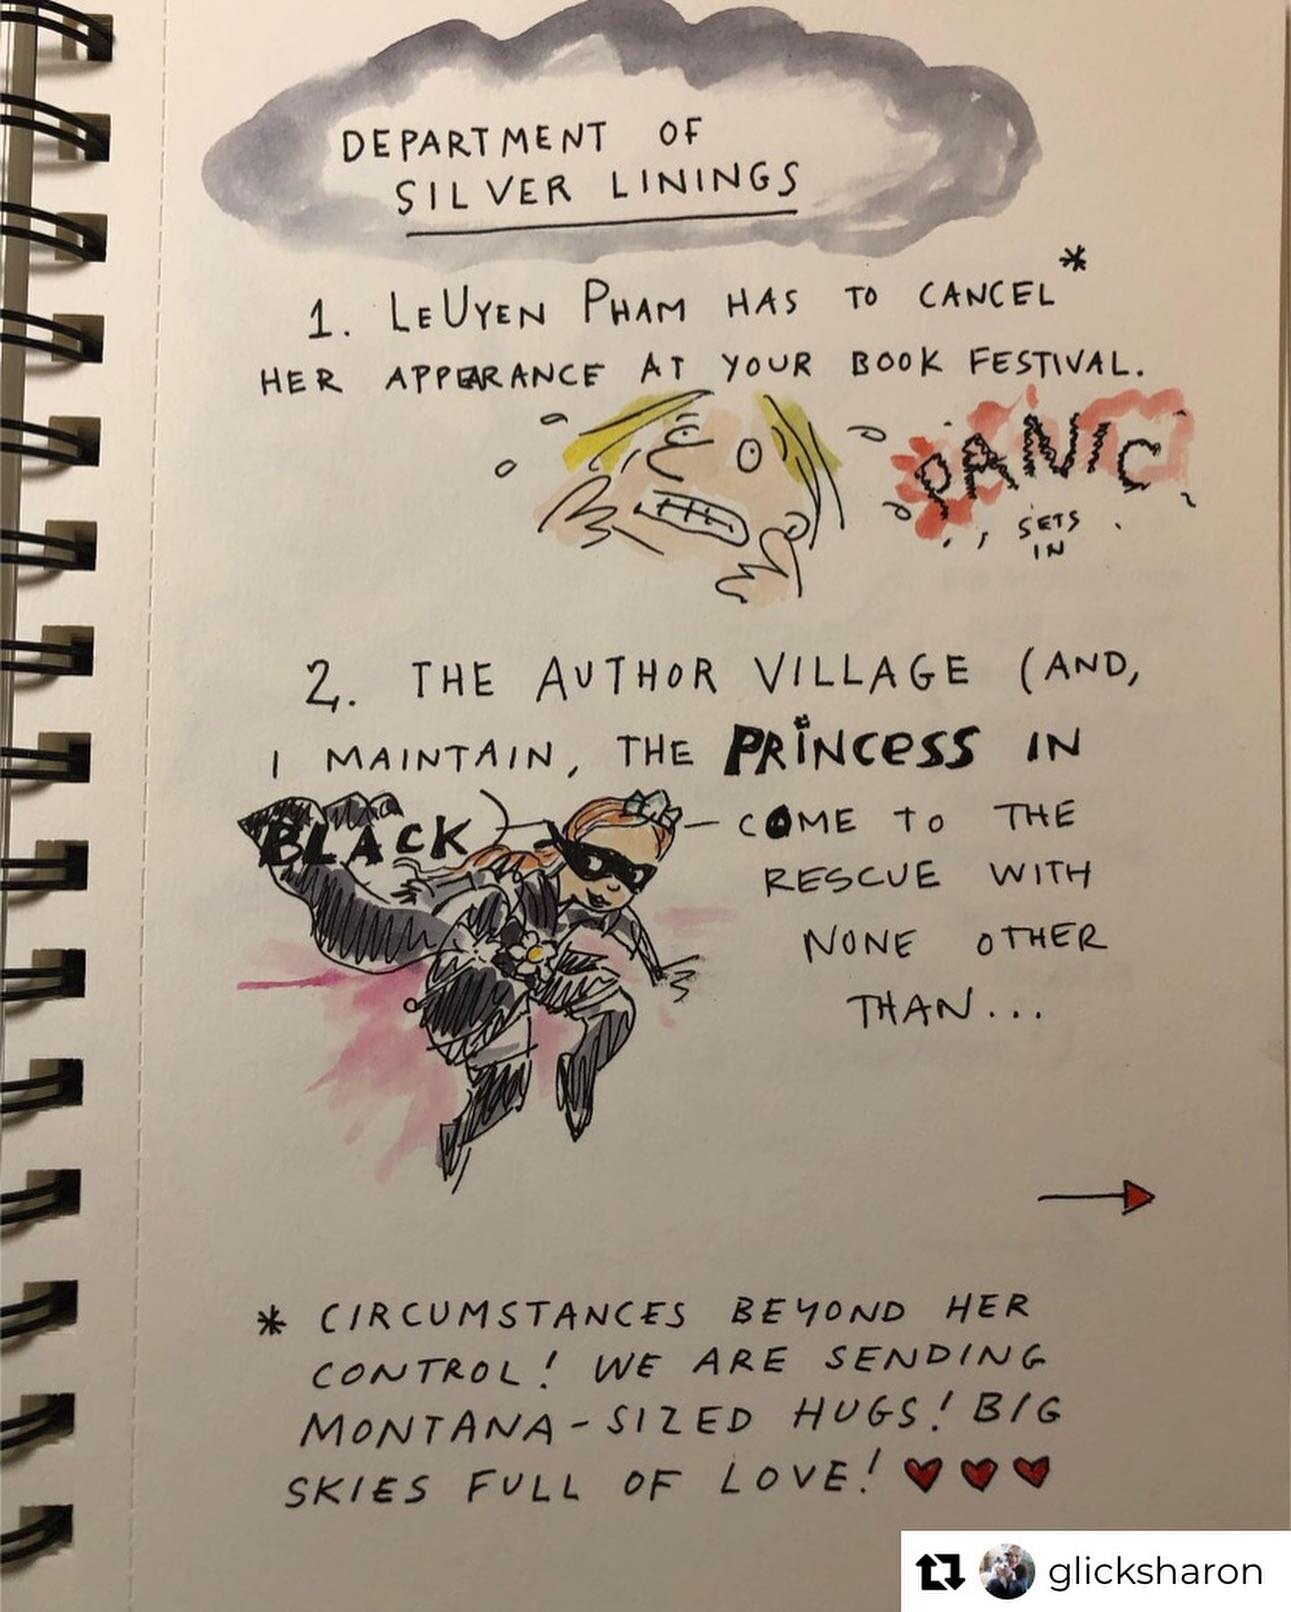 DEPARTMENT OF
SILVER LININGS
1. LEUYEN PHAM HAS TO CANCEL*
HER APPEARANCE AT YOUR BOOK FESTIVAL.
PANIC
SETS
IN
2. THE AUTHOR VILLAGE (AND,
I MAINTAIN, THE PRINCESS IN
BLACK) — COME TO THE
RESCUE WITH
NONE OTHER
THAN...
* CIRCUMSTANCES BEYOND HER
CONTROL! WE ARE SENDING
MONTANA-SIZED HUGS! BIG
SKIES FULL OF LOVE! ♥♥♥
glicksharon